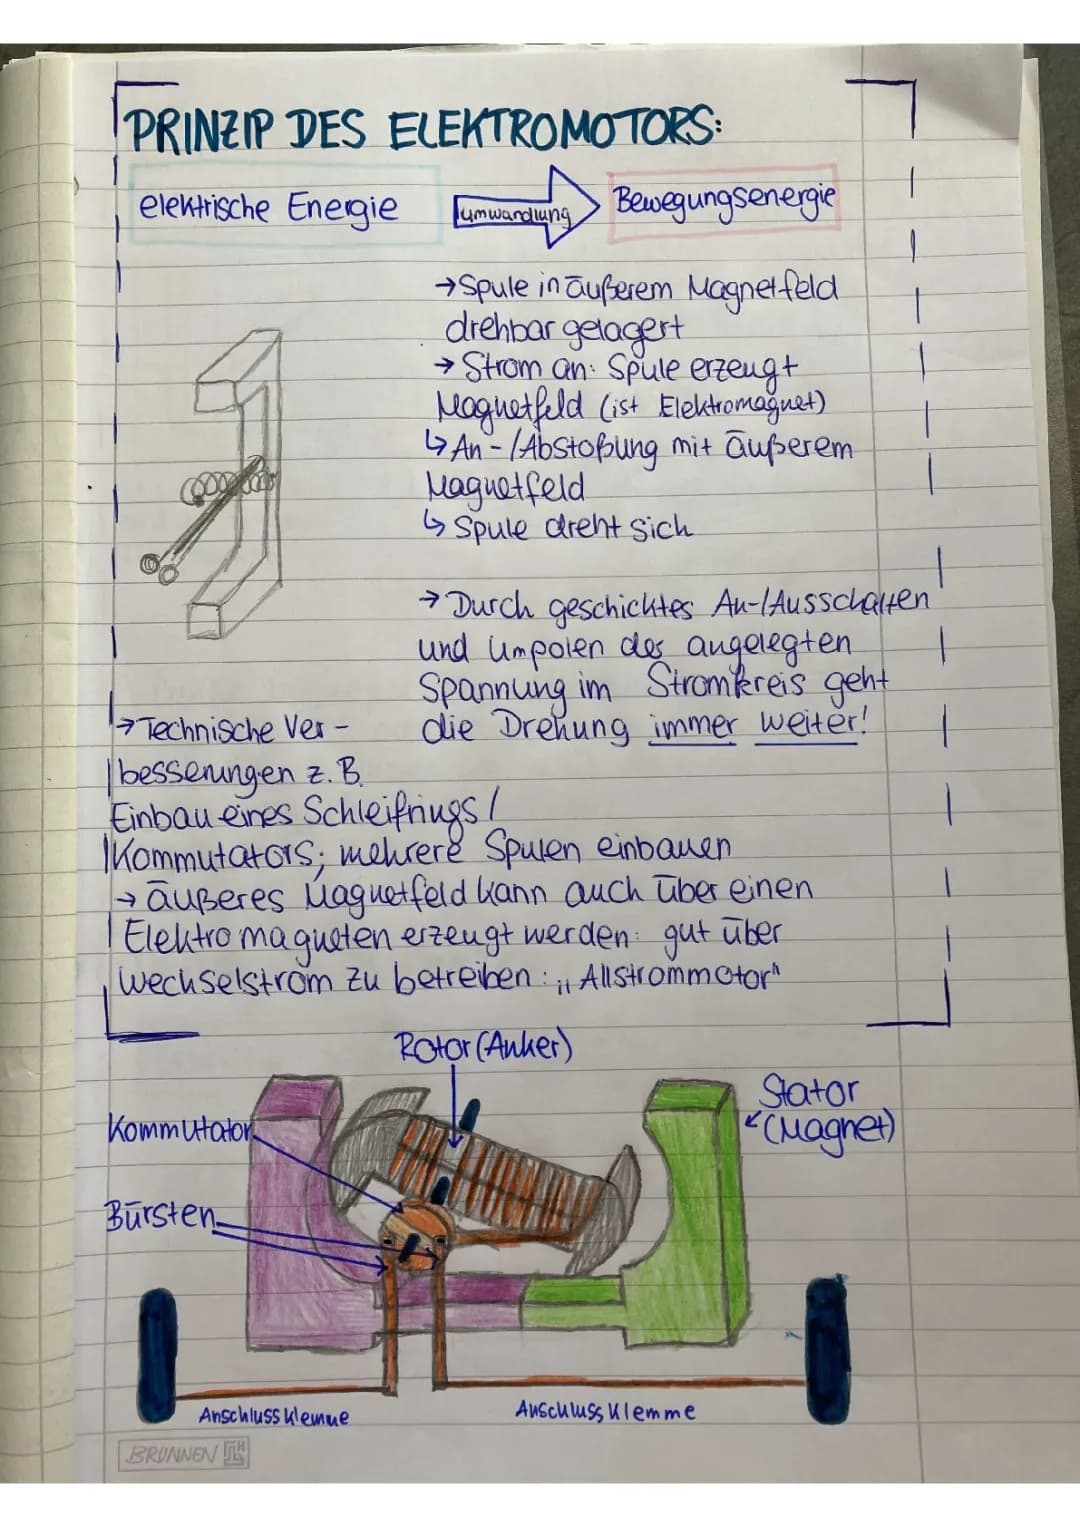 PRINZIP DES ELEKTROMOTORS:
elektrische Energie
Umwandlung
Bewegungsenergie
→ Spule in äußerem Magnetfeld
drehbar gelagert
→ Strom an: Spule erzeugt
Magnetfeld (ist Elektromagnet)
↳ An-/Abstoßung mit äußerem
Magnetfeld
↳ Spule dreht sich
→ Durch geschicktes An-/Ausschalten
und Umpolen der angelegten
Spannung im Stromkreis geht
die Drehung immer weiter!
→ Technische Ver-
besserungen z. B.
Einbau eines Schleifrings /
Kommutators; mehrere Spulen einbauen
→ äußeres Magnetfeld kann auch über einen
Elektromagneten erzeugt werden: gut über
Wechselstrom zu betreiben: „Allstrommotor"
Rotor (Anker)
Stator
(Magnet)
Kommutator
Bürsten
Anschlussklemme
Anschlussklemme
BRUNNEN